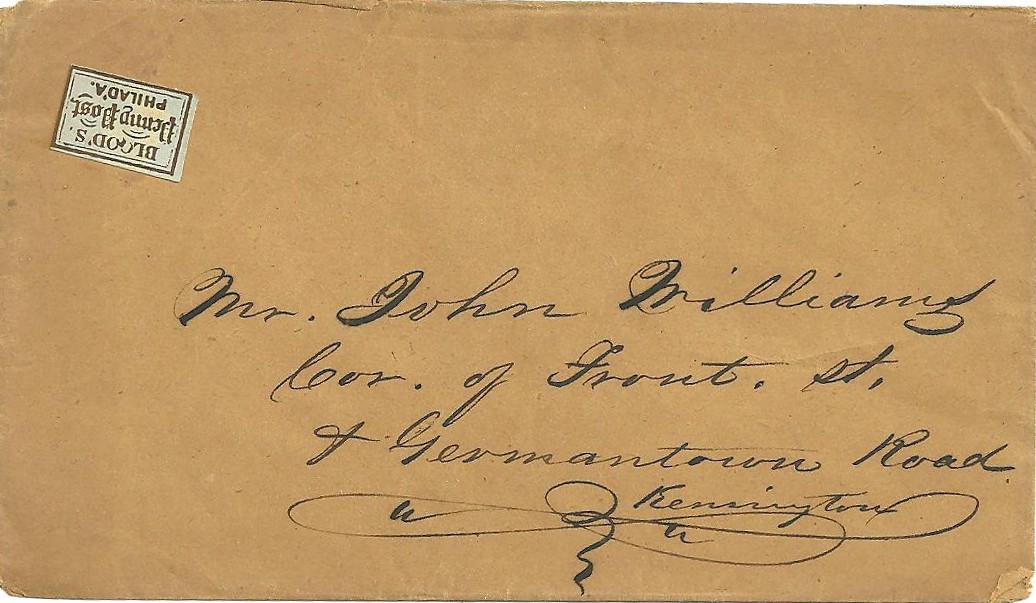 BLOOD'S.
Penny Post,
PHILAD'A.
Mr. John Williams
Cor. of Front. st.
& Germantown Road
Kensington